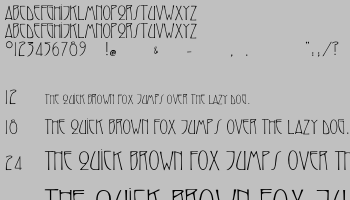 ABCDEFGHIJKLMNOPQRSTUVWXYZ
ABCDEFGHIJKLMNOPQRSTUVWXYZ
0123456789 !@ & - . , " : ; / ?
12 THE QUICK BROWN FOX JUMPS OVER THE LAZY DOG.
18 THE QUICK BROWN FOX JUMPS OVER THE LAZY DOG.
24 THE QUICK BROWN FOX JUMPS OVER TH
THE QUICK BROWN FOX JU